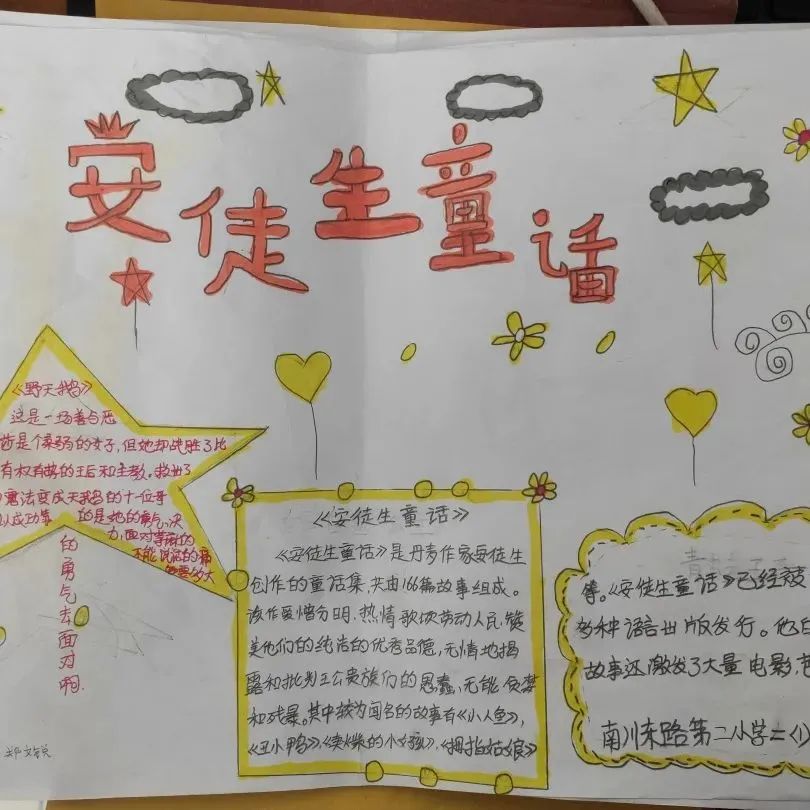 安徒生童话
《野天鹅》
这是一场善与恶
是个柔弱的女子,但她却战胜了比
有权有势的王后和主教。救出了
魔法变成天鹅的十一位哥
以成功靠的是她的勇气,决
力,面对
不能说话的痛
的勇气去面对啊.
《安徒生童话》
《安徒生童话》是丹麦作家安徒生
创作的童话集,共由166篇故事组成。
该作爱憎分明,热情歌颂劳动人民,赞
美他们的纯洁的优秀品德,无情地揭
露和批判王公贵族们的愚蠢、无能、贪婪
和残暴。其中较为闻名的故事有《小人鱼》,
《丑小鸭》、《卖火柴的小女孩》、《拇指姑娘》
等。《安徒生童话》已经被
多种语言出版发行。他
故事还激发了大量电影,
南川东路第二小学二(1)